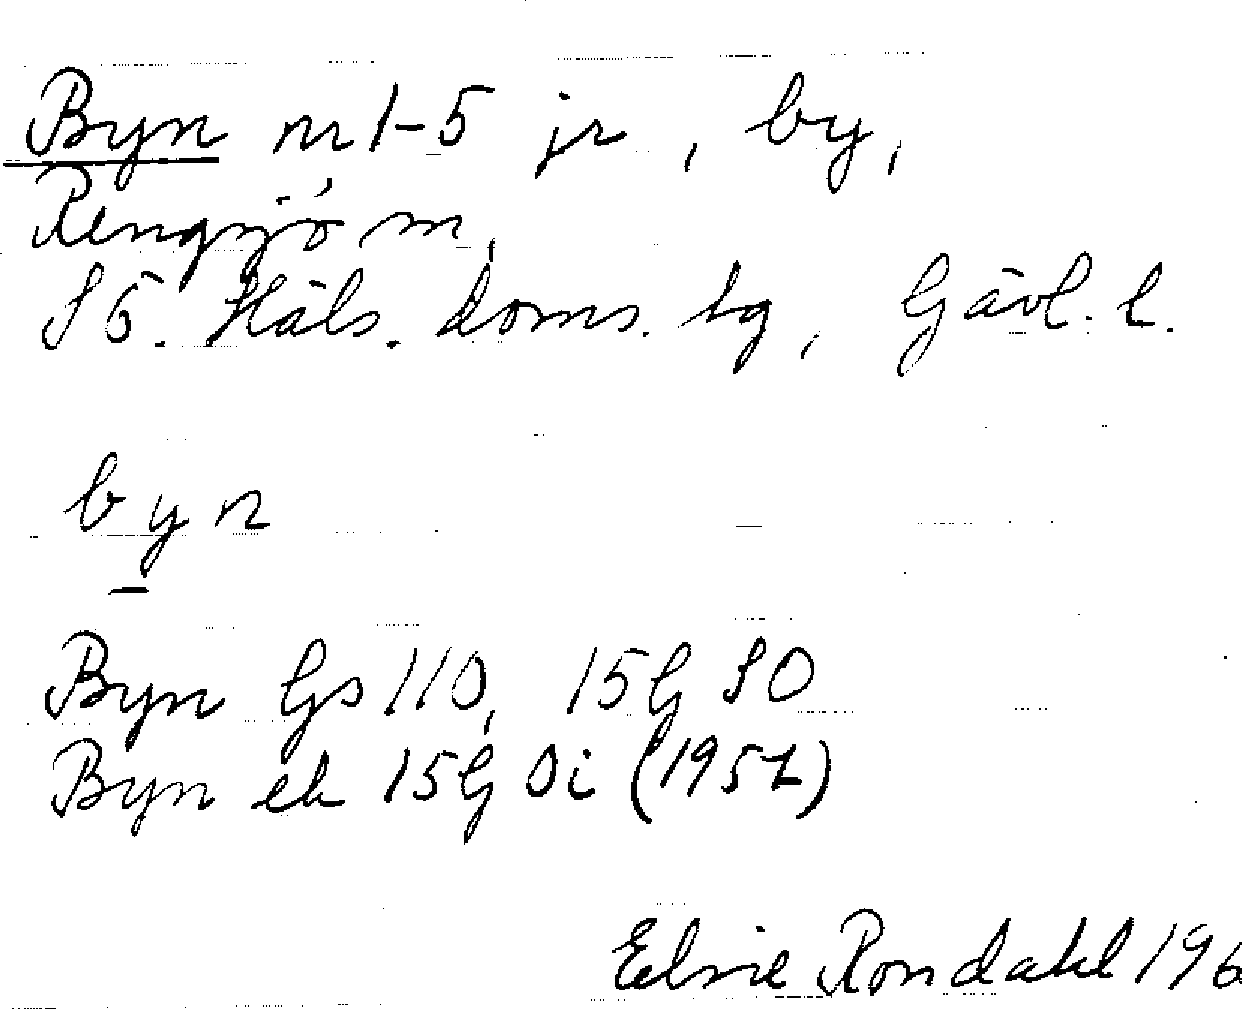 Byn nr 1-5 jr, by,
Rengsjö sn,
SÖ. Häls. doms. tg, Gävl. l.
byn
Byn Gs 110, 15G SO
Byn ek 15G 0i (1957)
Elsie Rondahl 196